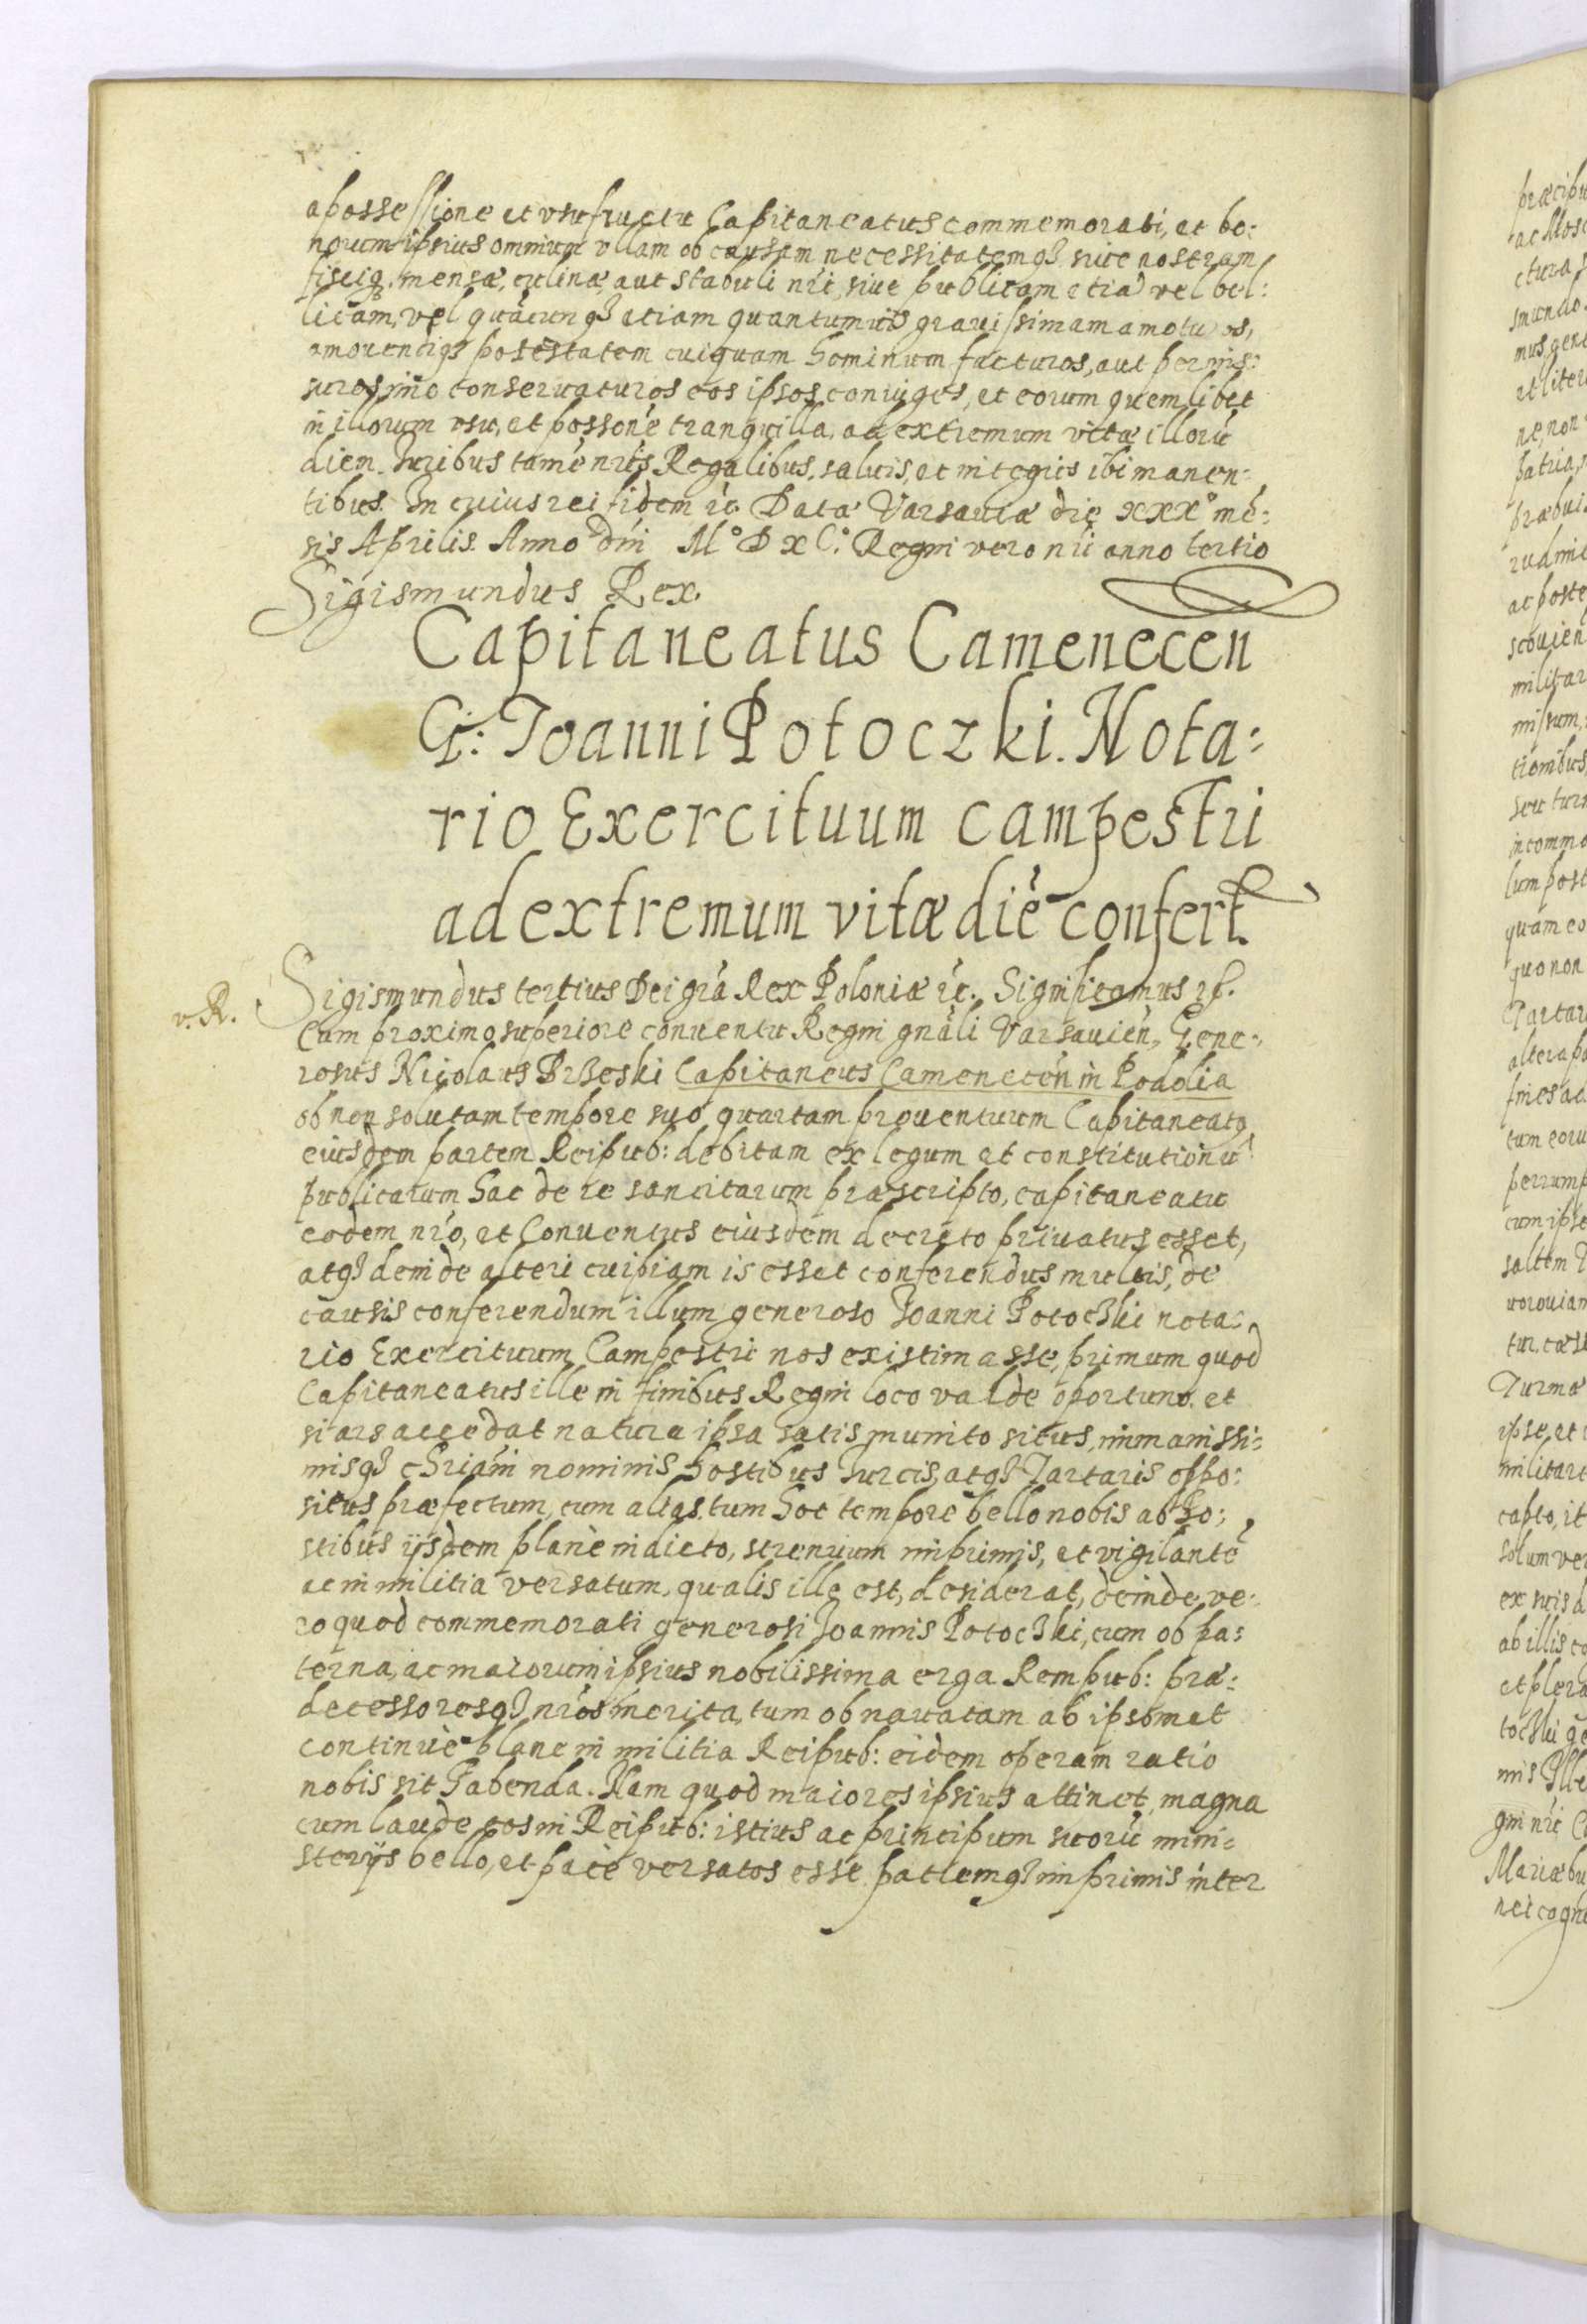 a possessione et vsufructu Capitaneatus commemorati, et bo:
norum ipsius omnium vllam ob causam necessitatemq3 siue nostram
fisciq3, mensæ, culinæ, aut stabuli nri, siue publicam etiã vel bel:
licam, vel quãcunq3 etiam quantumuis grauissimam amoturos,
amouendiq3 potestatem cuiquam hominum facturos, aut permis:
suros, imo conseruaturos eos ipsos coniuges, et eorum quemlibet
in illorum vsu, et possone tranquilla, ad extremum vitæ illorũ
diem. Iuribus tamẽ nris Regalibus, saluis, et integris ibi manen:
tibus. In cuius rei fidem rc. Datæ Varsauiæ die xxx° mẽ:
sis Aprilis. Anno Dni M° D XC.° Regni vero nri anno tertio
Sigismundus Rex.
Capitaneatus Camenecen
G: Ioanni Potoczki. Nota:
rio Exercituum campestri
ad extremum vitæ diẽ confert.
v. R. Sigismundus tertius Dei gra Rex Poloniæ rc. Significamus rc.
Cum proximo superiore conuentu Regni gnali Varsauien, Gene:
rosus Nicolaus Brzeski Capitaneus Camenecen in Podolia
ob non solutam tempore suo quartam prouentuum Capitaneatq
eiusdem partem Reipub: debitam ex legum et constitutionũ
publicarum hac de re sancitarum præscripto, capitaneatu
eodem nro, et Conuentus eiusdem decreto priuatus esset,
atq3 deinde alteri cuipiam is esset conferendus multis, de
causis conferendum illum generoso Ioanni Potoc3ki nota:
rio Exercituum Campestri nos existimasse, primum quod
Capitaneatus ille in finibus Regni loco valde oportuno, et
si ars accedat natura ipsa satis munito situs, immanissi:
misq3 chriani nominis hostibus Turcis, atq3 Tartaris oppo:
situs præfectum, cum alias, tum hoc tempore bello nobis ab ho:
stibus ijsdem planè indicto, strenuum imprimis, et vigilantẽ
ac in militia versatum, qualis ille est, desiderat, deinde ve:
ro quod commemorati generosi Ioannis Potoc3ki, cum ob pa:
terna, ac maiorum ipsius nobilissima erga Rempub: præ:
decessoresq3 nros merita, tum ob nauatam ab ipsomet
continuè plane in militia Reipub: eidem operam ratio
nobis sit habenda. Nam quod maiores ipsius attinet, magna
cum laude eos in Reipub: istius ac principum suorũ mini:
sterijs bello, et pace versatos esse patremq3 in primis inter